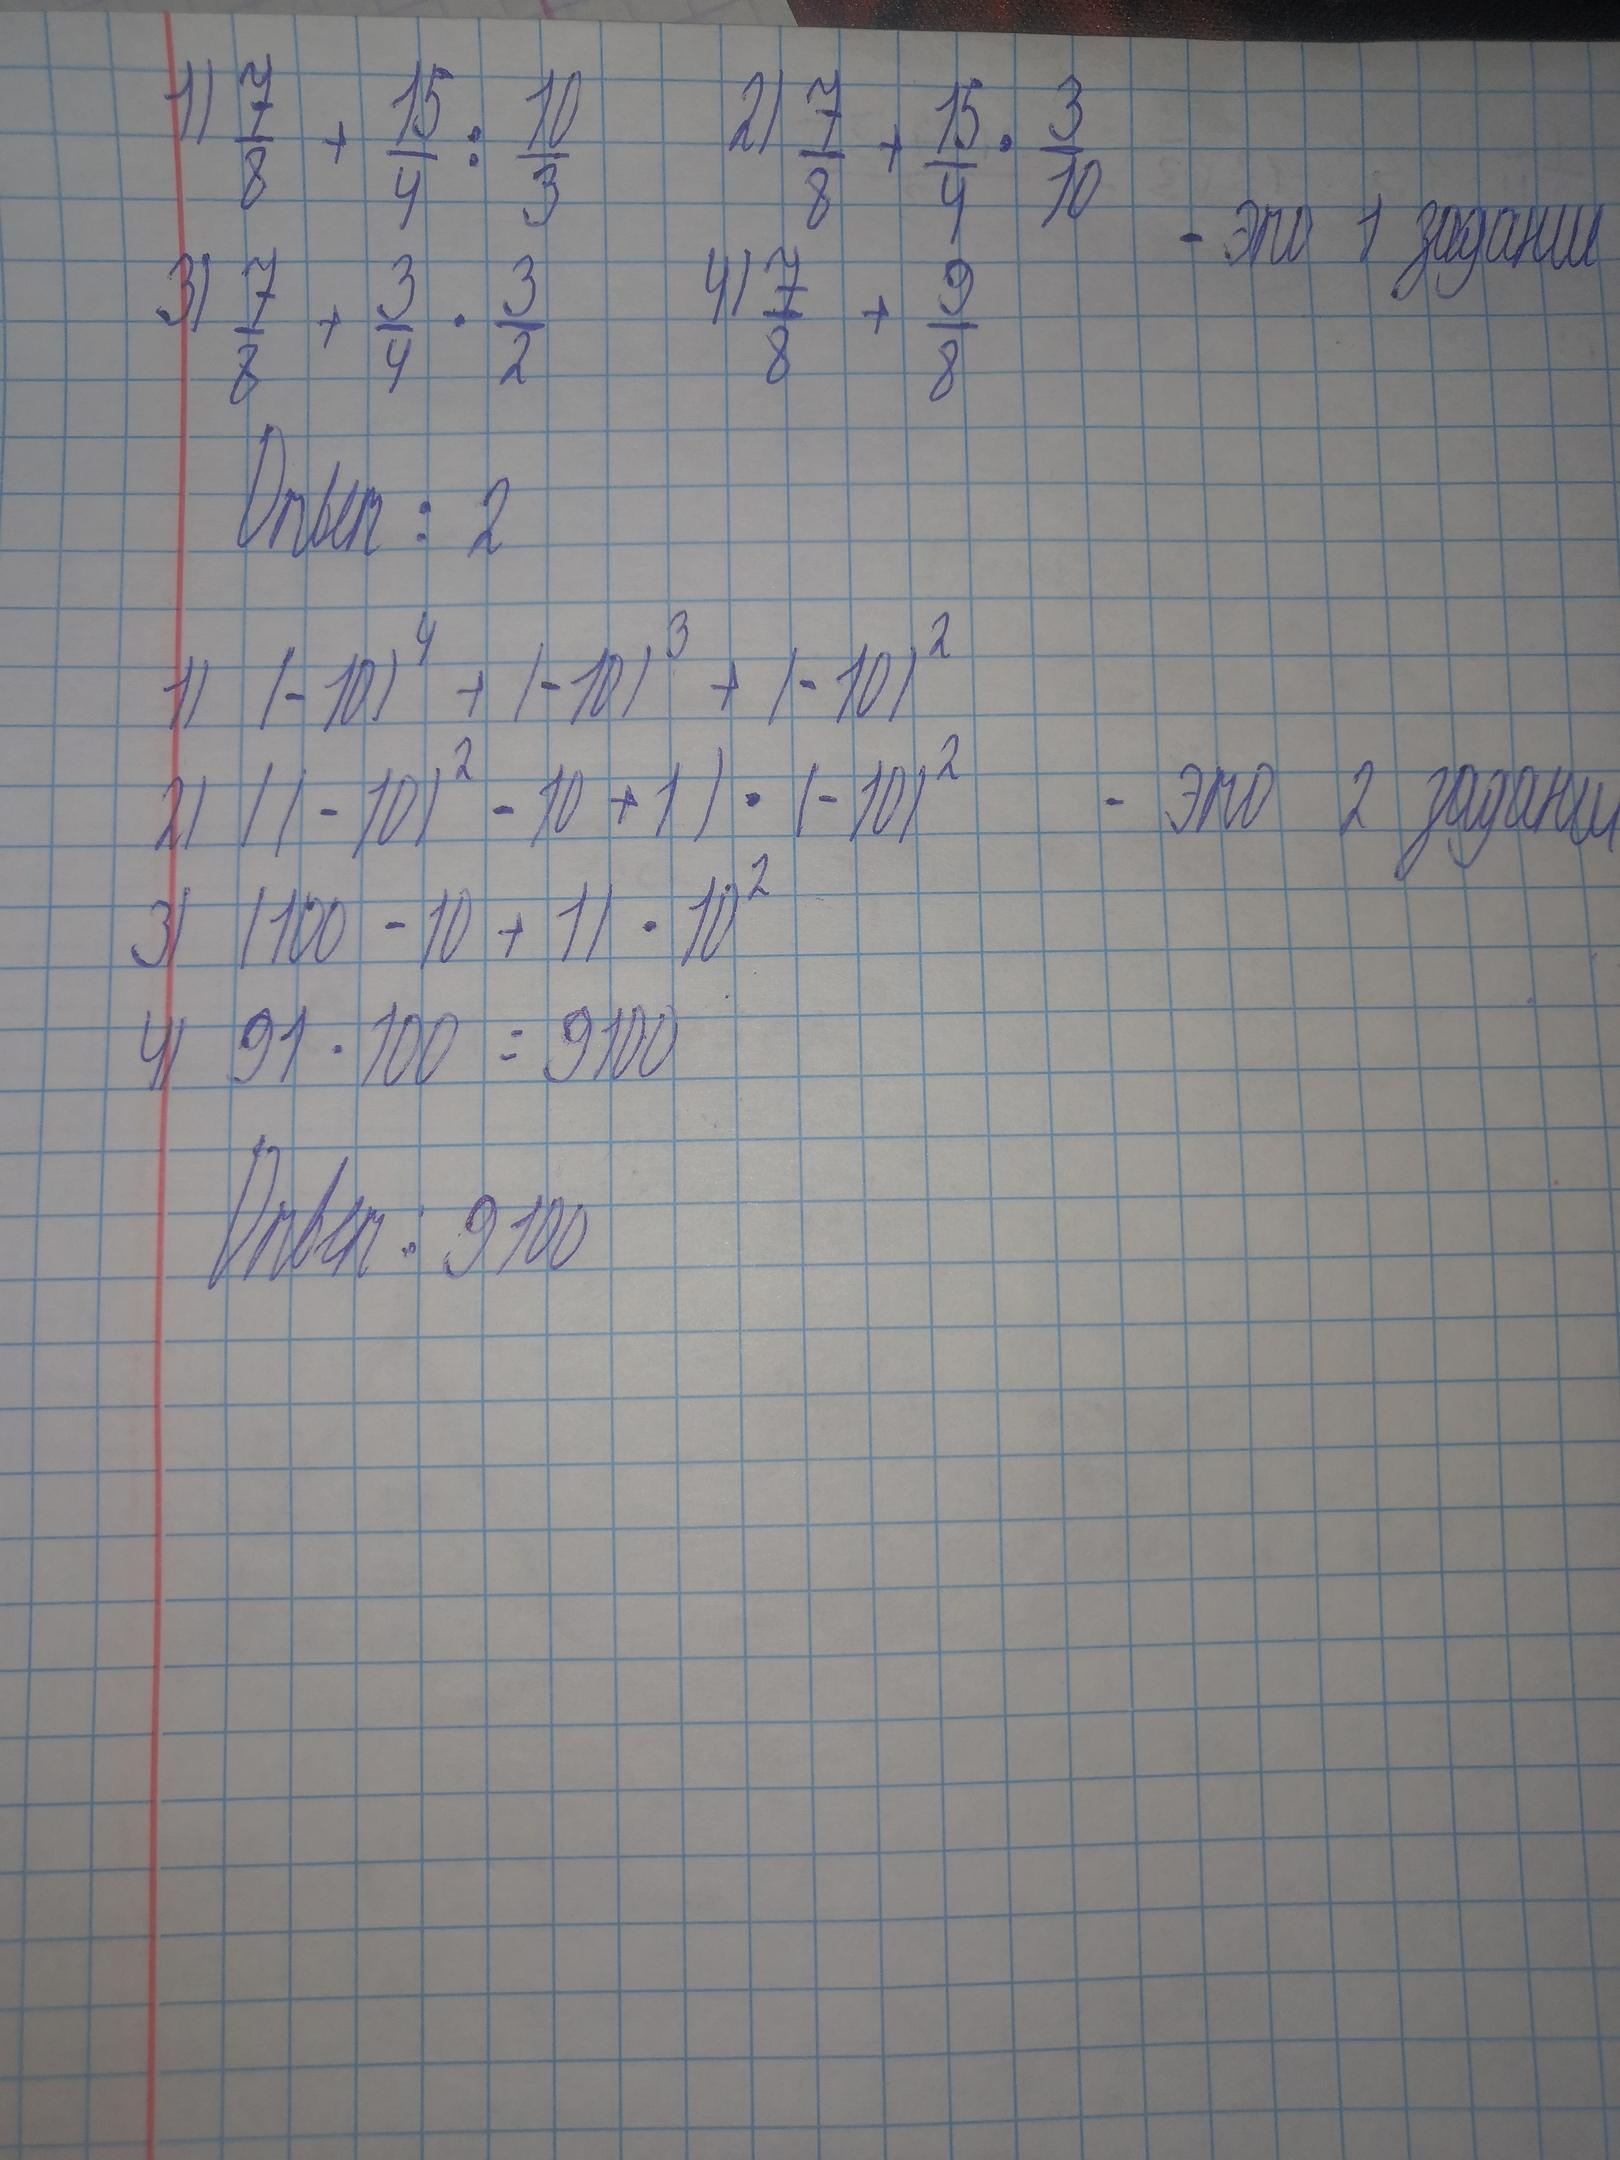 1) 7/8 + 15/4 : 10/3 2) 7/8 + 15/4 · 3/10
- это 1 задании
3) 7/8 + 3/4 · 3/2 4) 7/8 + 9/8
Ответ : 2
1) (-10)⁴ + (-10)³ + (-10)²
2) ((-10)² - 10 + 1) · (-10)² - это 2 задании
3) (100 - 10 + 1) · 10²
4) 91 · 100 = 9100
Ответ : 9100